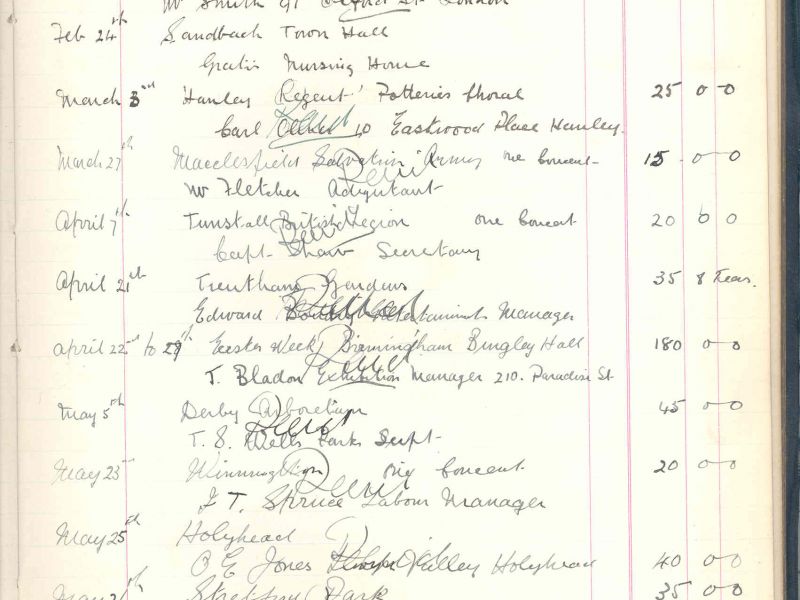 Mr Smith 91 Oxford St London
Feb 24th Sandbach Town Hall
Gratis Nursing Home
March 3rd Hanley Regent Potteries Choral 25 0 0
Carl 10 Eastwood Place Hanley.
March 27th Macclesfield Salvation Army one Concert 15 0 0
Mr Fletcher Adjutant
April 7th Tunstall British Legion one Concert 20 0 0
Capt Shaw Secretary
April 21st Trentham Gardens 35 8 Teas.
Edward Manager
April 22nd to 29th Easter Week Birmingham Bingley Hall 180 0 0
T. Bladon Exhibition Manager 210. Paradise St
May 5th Derby Arboretum 45 0 0
T. S. Wells Parks Supt
May 23rd Winnington one Concert 20 0 0
T. Spruce Labour Manager
May 25th Holyhead
O E Jones Holyhead 40 0 0
May Stretford Park 35 0 0